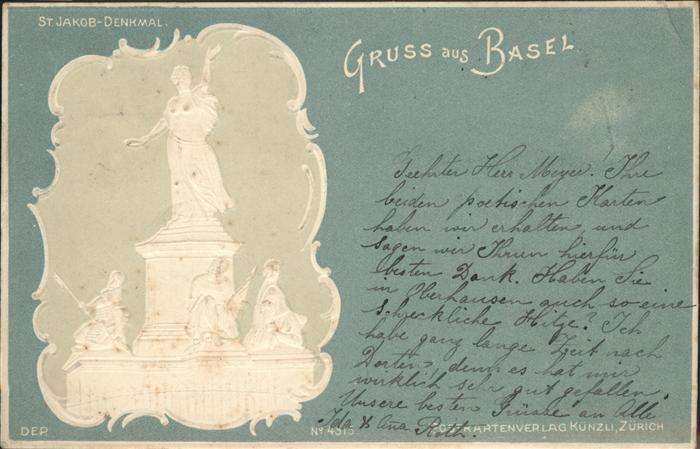 ST. JAKOB-DENKMAL.
GRUSS AUS BASEL.
Geehrter Herr Meyer! Ihre
beiden poetischen Karten
haben wir erhalten, und
sagen wir Ihnen hierfür
besten Dank. Haben Sie
in Oberhausen auch so eine
schreckliche Hitze? Ich
habe ganz lange Zeit nach
Dorten, denn es hat mir
wirklich sehr gut gefallen.
Unsere besten Grüsse an Alle
Ida & Roth.
DEP.
No 4315
POSTKARTENVERLAG KÜNZLI, ZÜRICH